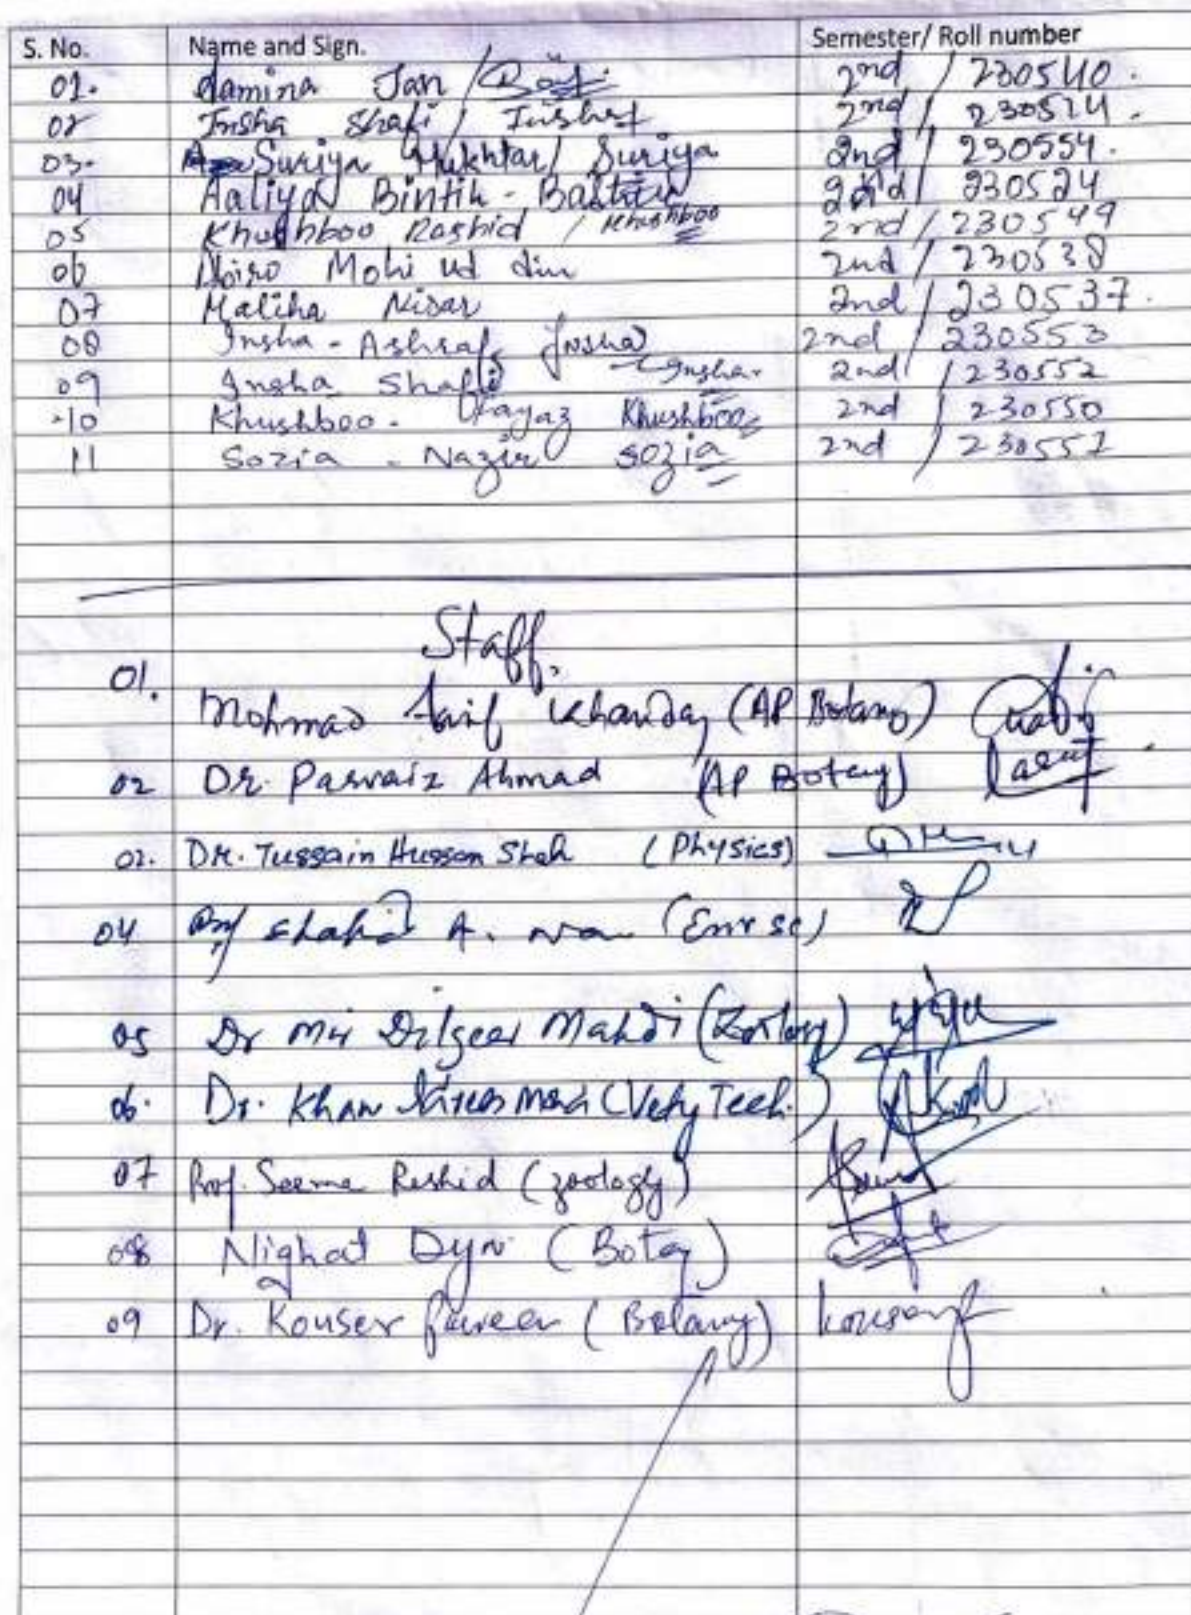 S. No. Name and Sign. Semester/ Roll number
01. Jan / 2nd / 230540.
02 Insha Shafi / 2nd / 230514.
03. Suriya Mukhtar / Suriya 2nd / 230554.
04 Aaliya Bintih - Bashir 2nd / 230524
05 Khushboo Rashid / Khushboo 2nd / 230549
06 Mohi ud din 2nd / 230538
07 Maliha Nisar 2nd / 230537.
08 Insha - Ashraf Insha 2nd / 230553
09 Insha Shafi Insha 2nd / 230552
10 Khushboo - Fayaz Khushboo 2nd / 230550
11 Sozia - Nazir Sozia 2nd / 230551
Staff,
01.
Mohmad Arif Khanday (AP Botany)
02 Dr. Parvaiz Ahmad (AP Botany)
02. DR. Tussain Hussan Shah (Physics)
04 Prof Shahid A. (Env sc)
05 Dr Mir Dilgeer Mahdi (Zoology)
06. Dr. Khan (Vety Tech.)
07 Prof. Seema Rashid (zoology)
08 Nighat (Botany)
09 Dr. Kouser Parveen (Botany)